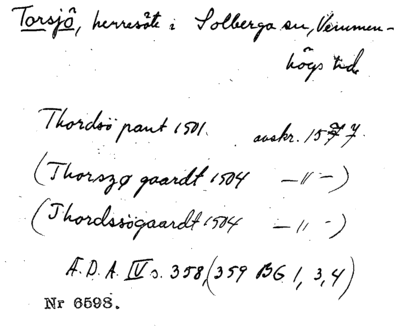 Torsjö, herresäte i Solberga sn, Vemmen-
högs hd
Thordsö pant 1501. avskr. 1577.
(Thorszø gaardt 1504 —"—)
(Thordssøgaardt 1504 —"—)
Æ.D.A. IV s. 358, (359 BG 1, 3, 4)
Nr 6598.